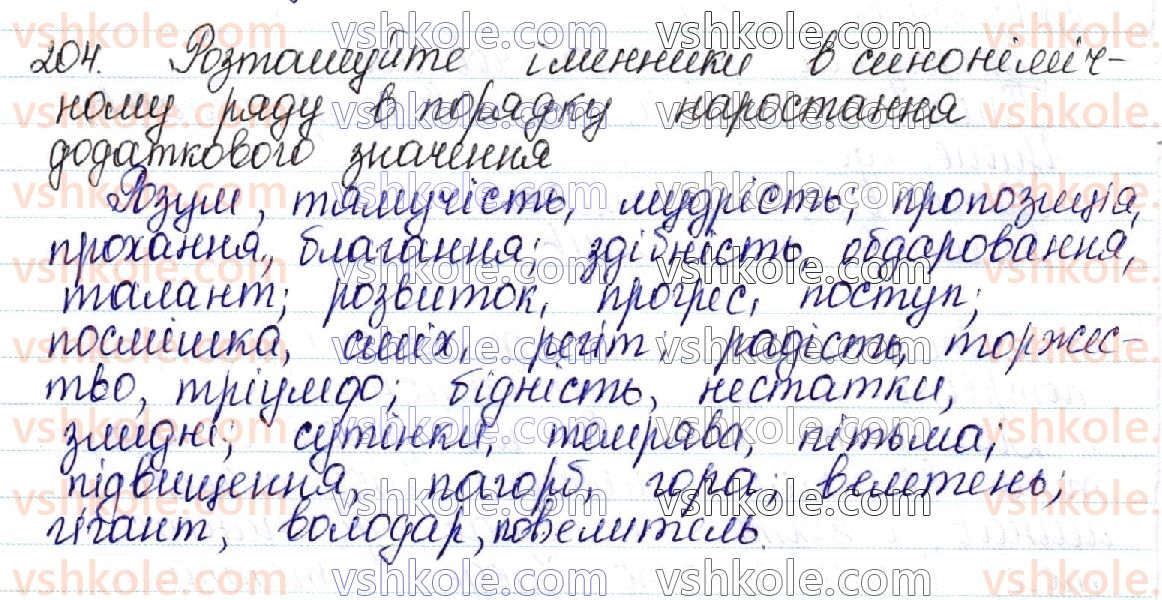 204. Розташуйте іменники в синоніміч-
ному ряду в порядку наростання
додаткового значення
Розум, тямучість, мудрість; пропозиція,
прохання, благання; здібність, обдаровання,
талант; розвиток, прогрес, поступ;
посмішка, сміх, регіт; радість, торжес-
тво, тріумф; бідність, нестатки,
злидні; сутінки, темрява, пітьма;
підвищення, пагорб, гора; велетень;
гігант, володар, повелитель.